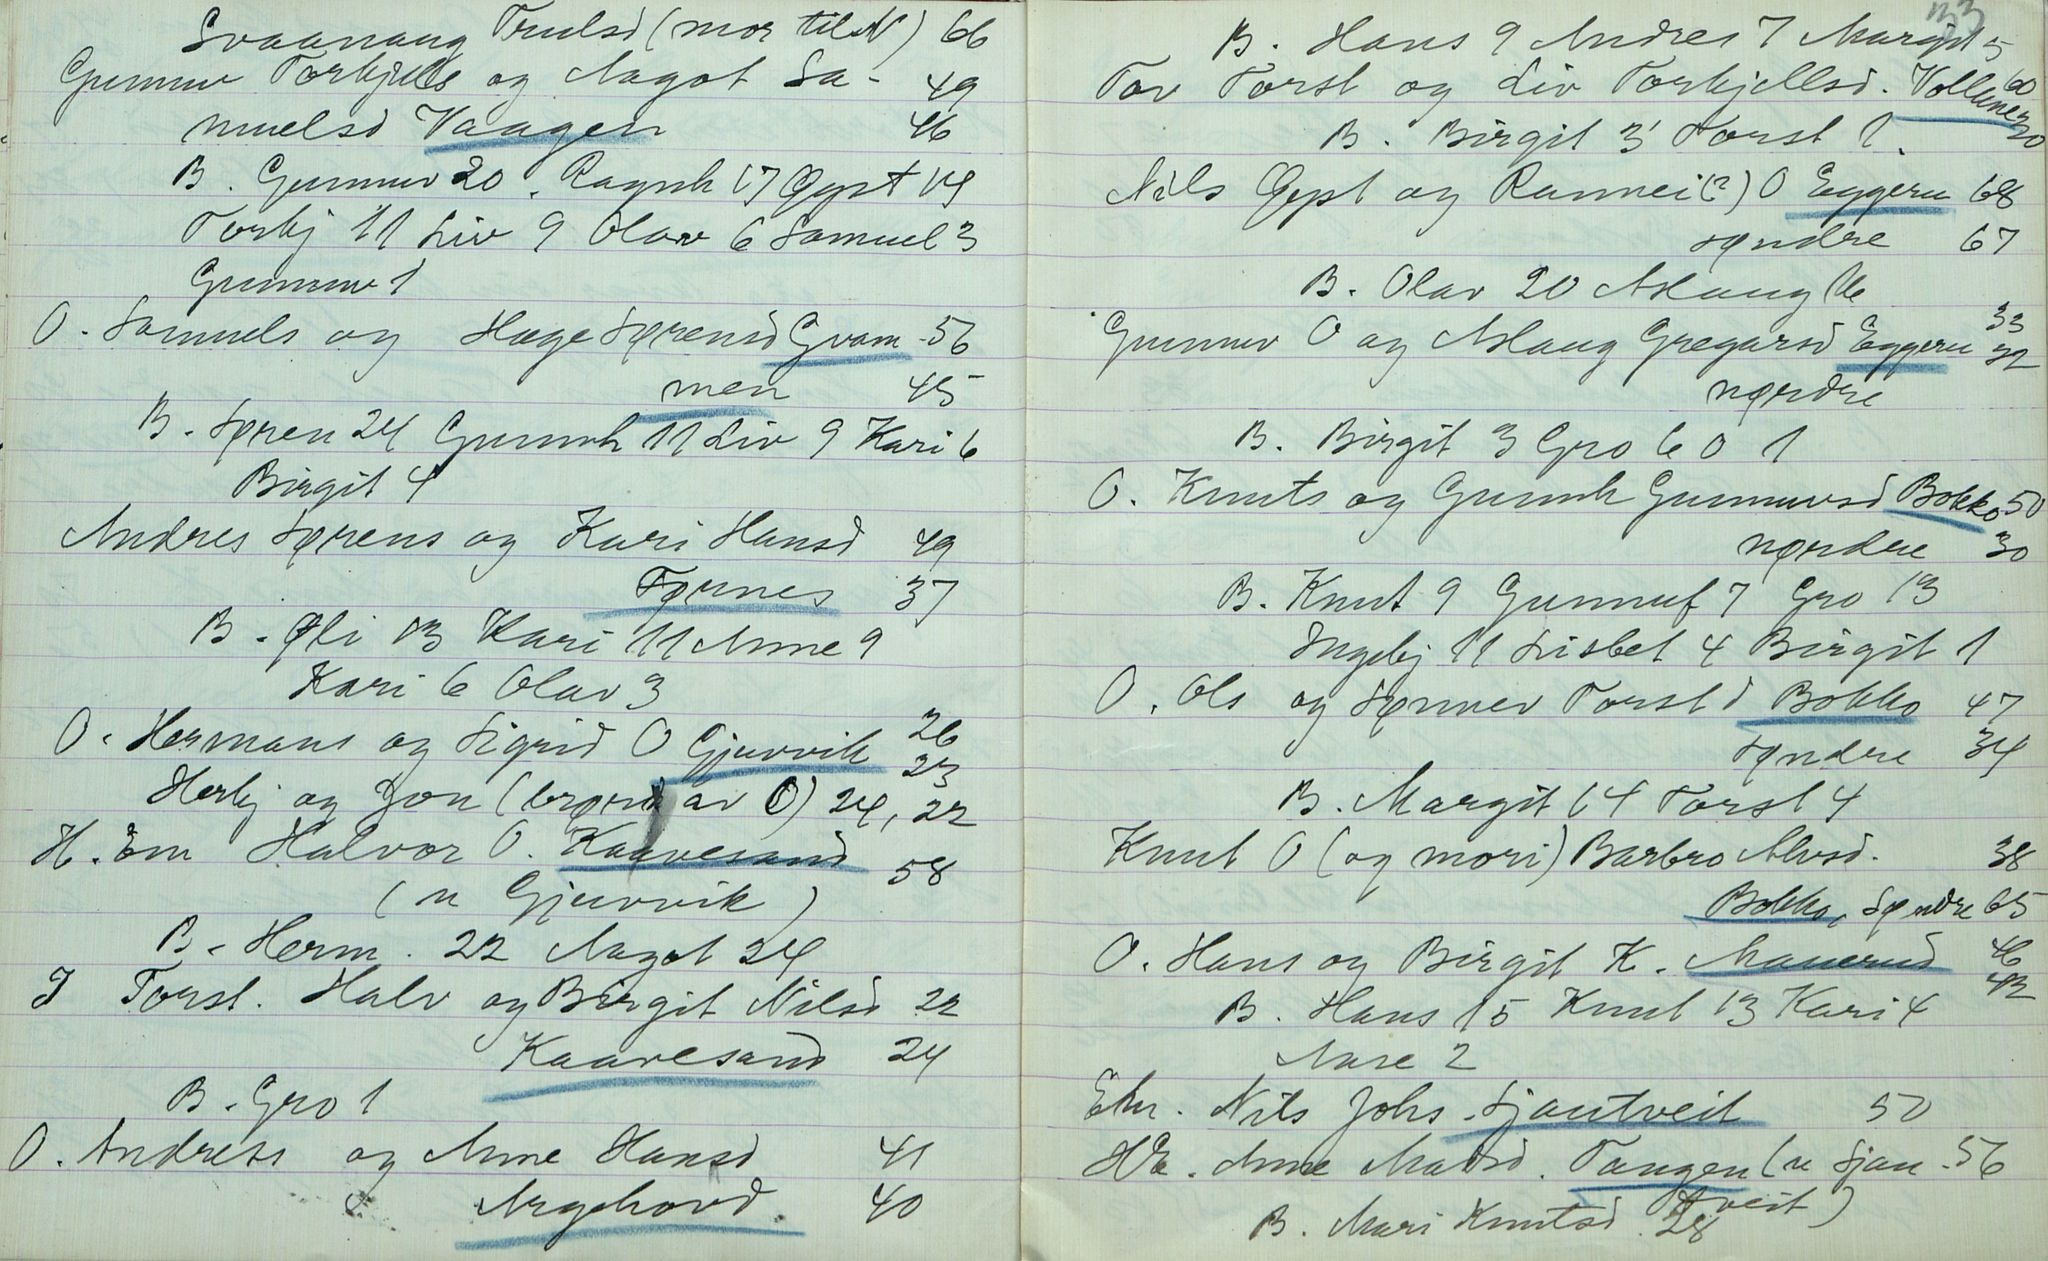 Svaanaug Trulsd (mor til N) 66
Gunnar Torkjels og Aagot Sa- 49
muelsd Vaagen 46
B. Gunnuv 20. Ragnh 17 Øyst 14
Torbj 11 Liv 9 Olav 6 Samuel 3
Gunnuv 1
O. Samuels og Hæge Sørensd Gvam- 56
men 45
B. Søren 24 Gunnh 11 Liv 9 Kari 6
Birgit 4
Andres Sørens og Kari Hansd 49
Tørnes 37
B. Øli 13 Kari 11 Anne 9
Kari 6 Olav 3
O. Hermans og Sigrid O Gjuvvik 26
23
Herbj og Jon (brørn av O) 24, 22
H. Em Halvor O. Kaavesand 58
(u Gjuvvik)
B. Herm. 22 Aagot 24
I Torst. Halv og Birgit Nilsd 22
Kaavesand 24
B. Gro 1
O. Andress og Anne Hansd 41
Argehovd 40
33
B. Hans 9 Andres 7 Margit 5
Tov Torst og Liv Torkjellsd. Vollane 60
30
B. Birgit 3 Torst 1.
Nils Øyst og Rannei (?) O Eggeru 68
søndre 67
B. Olav 20 Aslaug 16
Gunnuv O og Aslaug Gregarsd Eggeru 33
32
nørdre
B. Birgit 3 Gro 6 O 1
O. Knuts og Gunnh Gunnuvsd Bokko 50
nørdre 30
B. Knut 9 Gunnuf 7 Gro 13
Ingebj 11 Lisbet 4 Birgit 1
O. Ols og Sønnev Torstd Bokko 47
søndre 34
B. Margit 14 Torst 4
Knut O (og mori) Barbro Alvsd. 38
Bokko, søndre 65
O. Hans og Birgit K. Manerud 46
42
B. Hans 15 Knut 13 Kari 4
Aase 2
Ekm. Nils Johs. Sjautveit 50
HE. Anne Madsd. Tangen (u Sjau- 56
tveit)
B. Mari Knutsd. 28